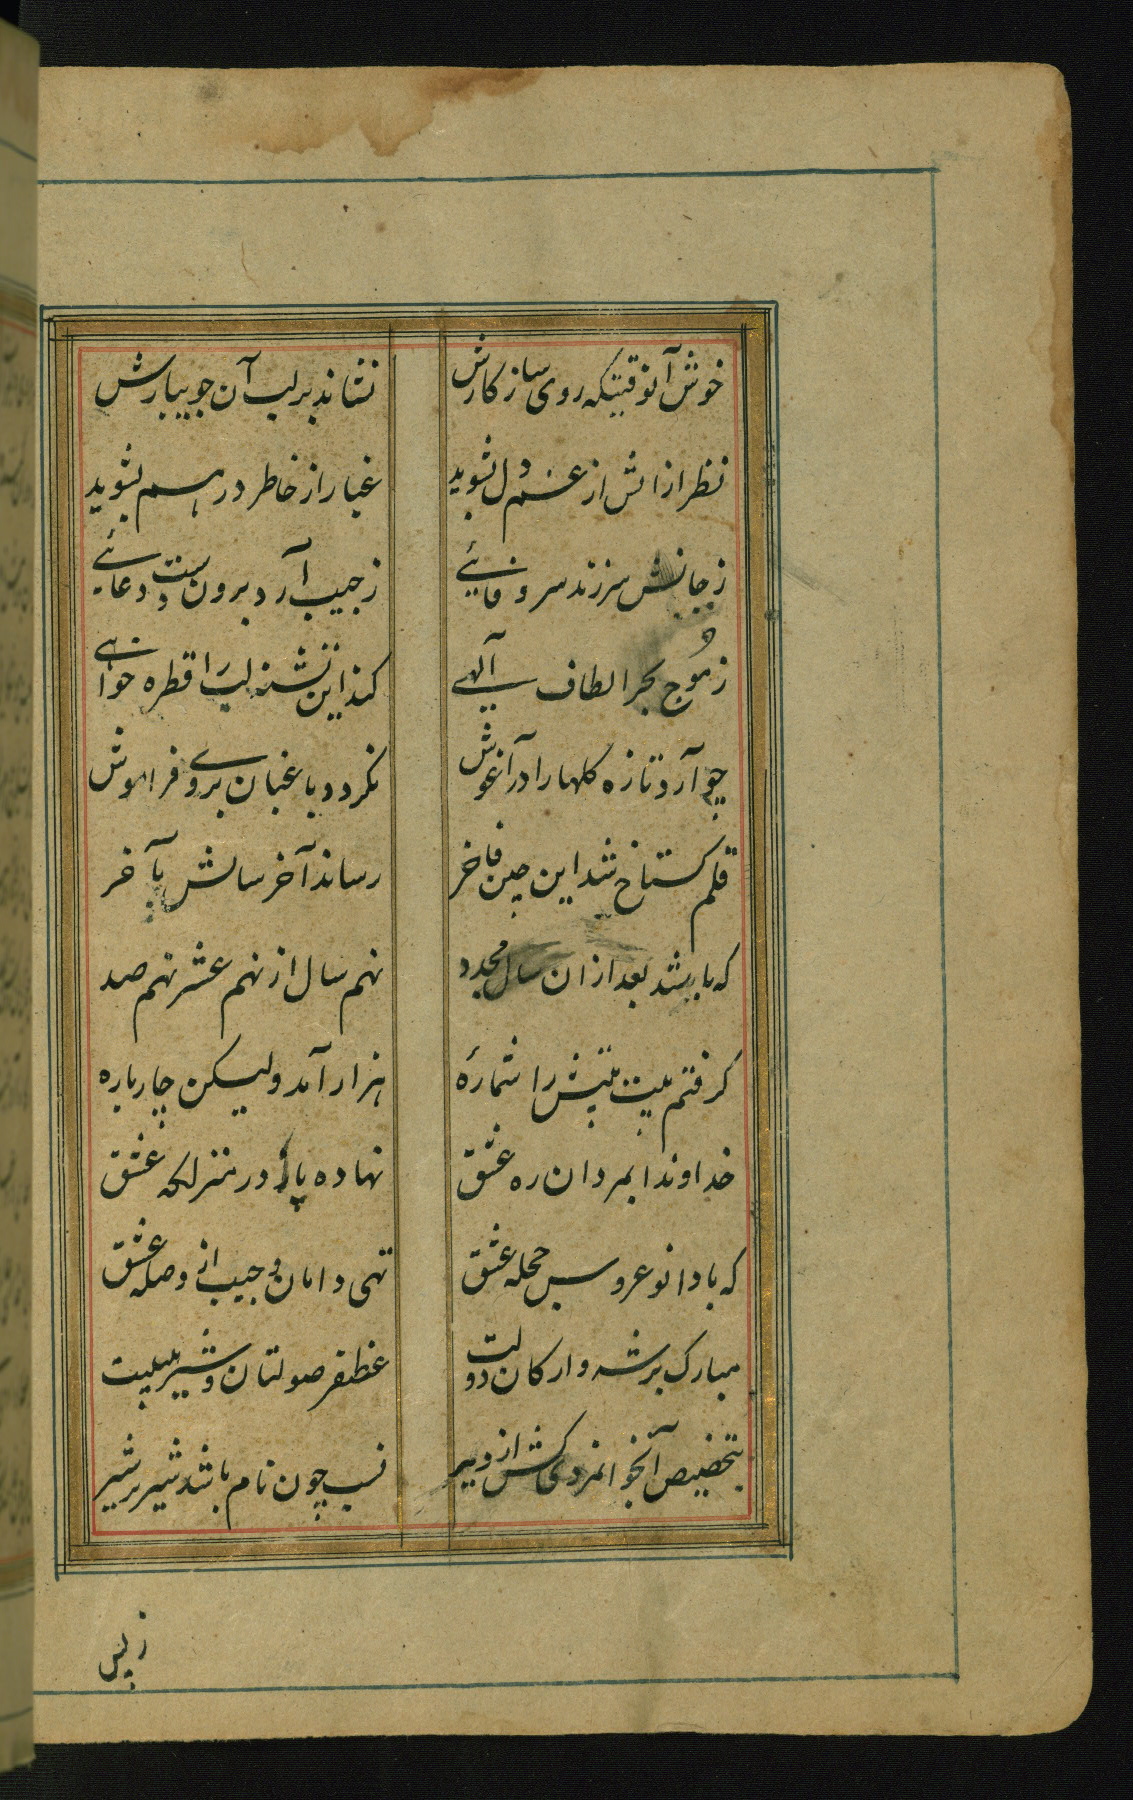 خوش آنوقتیکه روی ساز کارش نشاند بر لب آن جویبارش
نظر از اتش از غم دل بشوید غبار از خاطر درهم بشوید
ز جانش سر زند سر وفائے ز جیب آرد برون دست دعائے
ز موج بحر الطاف آلهے کند این تشنه لب را قطره خواهے
چو آرد تازه کلها را در آغوش نکردد باغبان بروے فراموش
قلم کستاخ شد این فاخر رساند آخر سالش بآخر
که باشد بعد از ان سال مجدد نهم سال از نهم عشر نهم صد
کرفتم بیت بیتش را شمارۀ هزار آمد ولیکن چار پاره
خداوندا بمردان ره عشق نهاده پای در منزلکه عشق
که با دانو عروس حجله عشق تهی دامان و جیب از وصله عشق
مبارک بر شه و ارکان دولت غضنفر صولتان و شیر هیبت
بتخصیص آنجوانمردی کش از ویر نسب چون نام باشد شیر بر شیر
ز پس